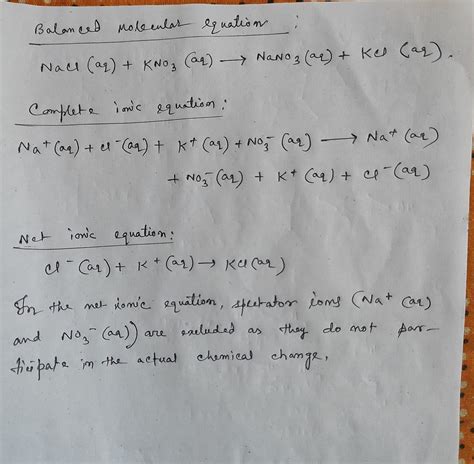 Balanced Molecular equation :
NaCl (aq) + KNO₃ (aq) ⟶ NaNO₃ (aq) + KCl (aq).
Complete ionic equation :
Na⁺ (aq) + Cl⁻ (aq) + K⁺ (aq) + NO₃⁻ (aq) ⟶ Na⁺ (aq)
+ NO₃⁻ (aq) + K⁺ (aq) + Cl⁻ (aq)
Net ionic equation :
Cl⁻ (aq) + K⁺ (aq) → KCl (aq)
In the net ionic equation, spectator ions (Na⁺ (aq)
and NO₃⁻ (aq)) are excluded as they do not par-
ticipate in the actual chemical change.